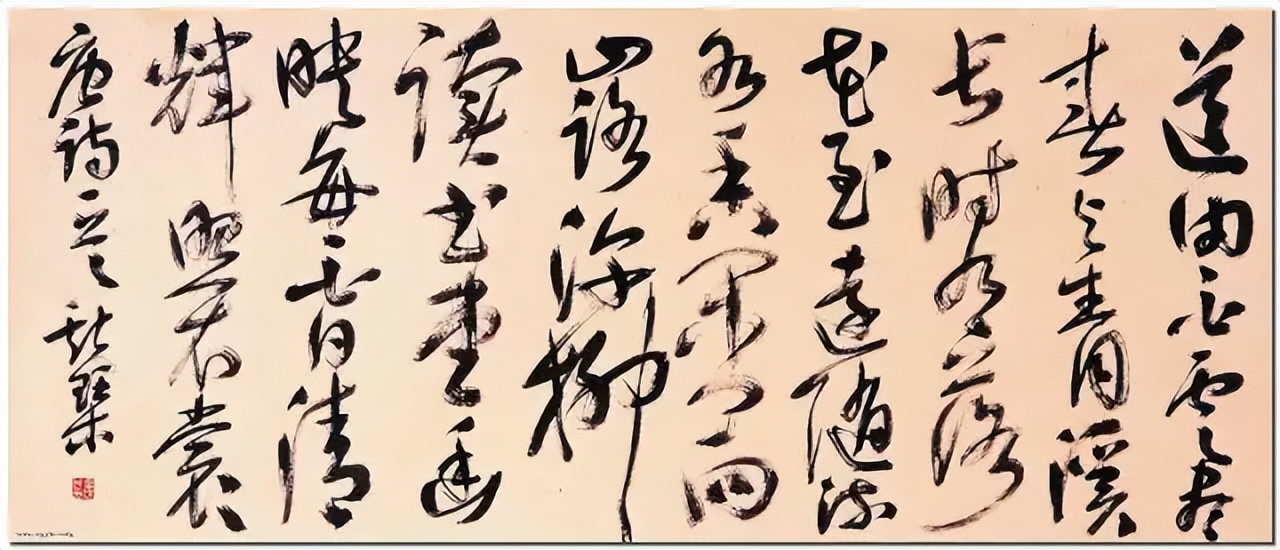 道由白云尽
春与青溪
长时有落
花至远随流
水香闲门向
山路深柳
读书堂幽
映每白日清
辉照衣裳
唐诗一首